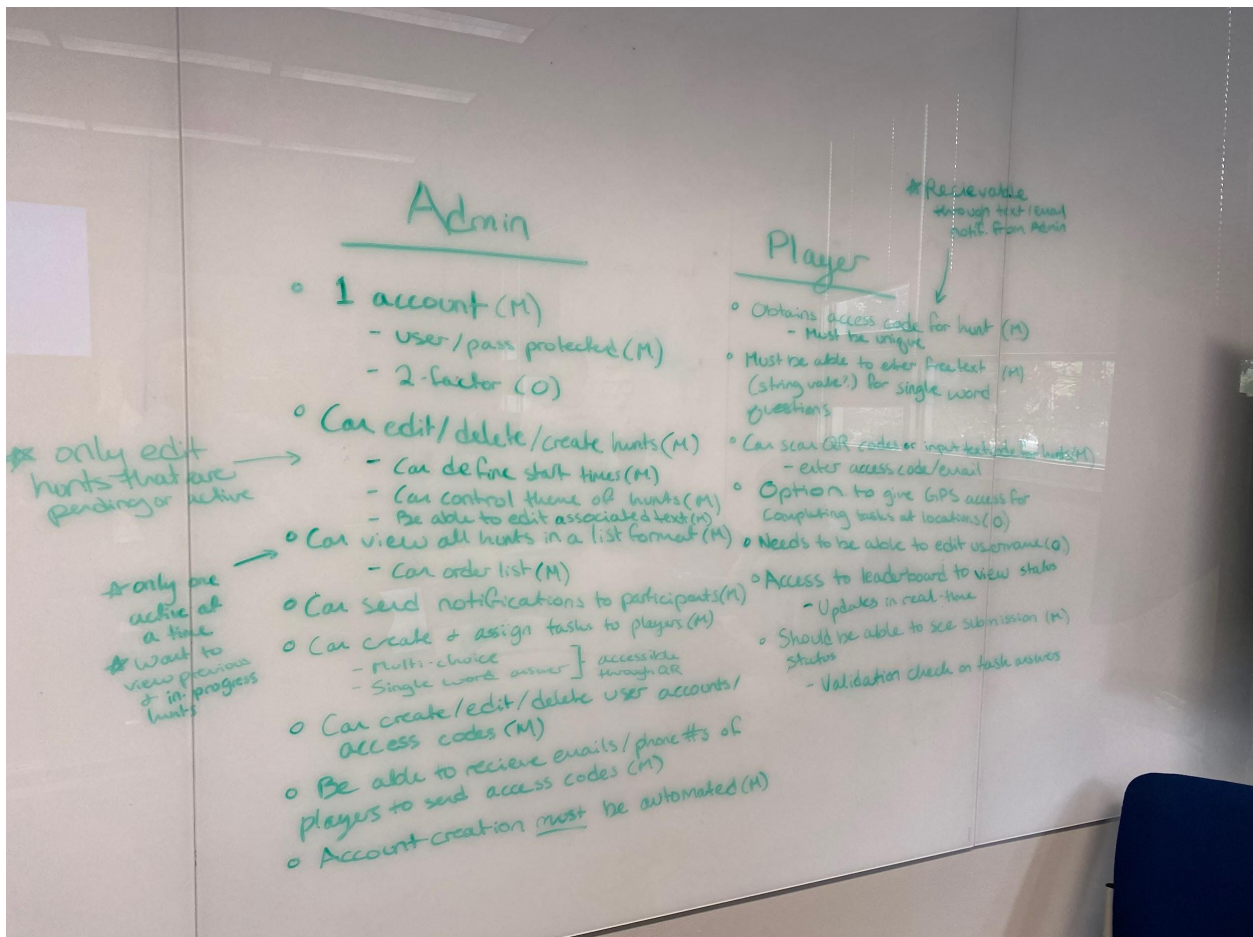 Admin
○ 1 account (M)
- user/pass protected (M)
- 2-factor (O)
○ Can edit/delete/create hunts (M)
- Can define start times (M)
- Can control theme of hunts (M)
- Be able to edit associated text (M)
○ Can view all hunts in a list format (M)
- Can order list (M)
○ Can send notifications to participants (M)
○ Can create + assign tasks to players (M)
- Multi-choice
- Single word answer
] accessible
through QR
○ Can create/edit/delete user accounts/
access codes (M)
○ Be able to recieve emails/phone #s of
players to send access codes (M)
○ Account creation must be automated (M)
☆ only edit
hunts that are
pending or active
☆ only one
active at
a time
☆ Want to
view previous
+ in progress
hunts
Player
☆ Recievable
through text/email
notif. from Admin
○ Obtains access code for hunt (M)
- Must be unique
○ Must be able to enter free text (M)
(string value) for single word
questions
○ Can scan QR codes or input hunts (M)
- enter access code/email
○ Option to give GPS access for
completing tasks at locations (O)
○ Needs to be able to edit username (O)
○ Access to leaderboard to view status
- Updates in real-time
○ Should be able to see submission (M)
status
- Validation check on task answer